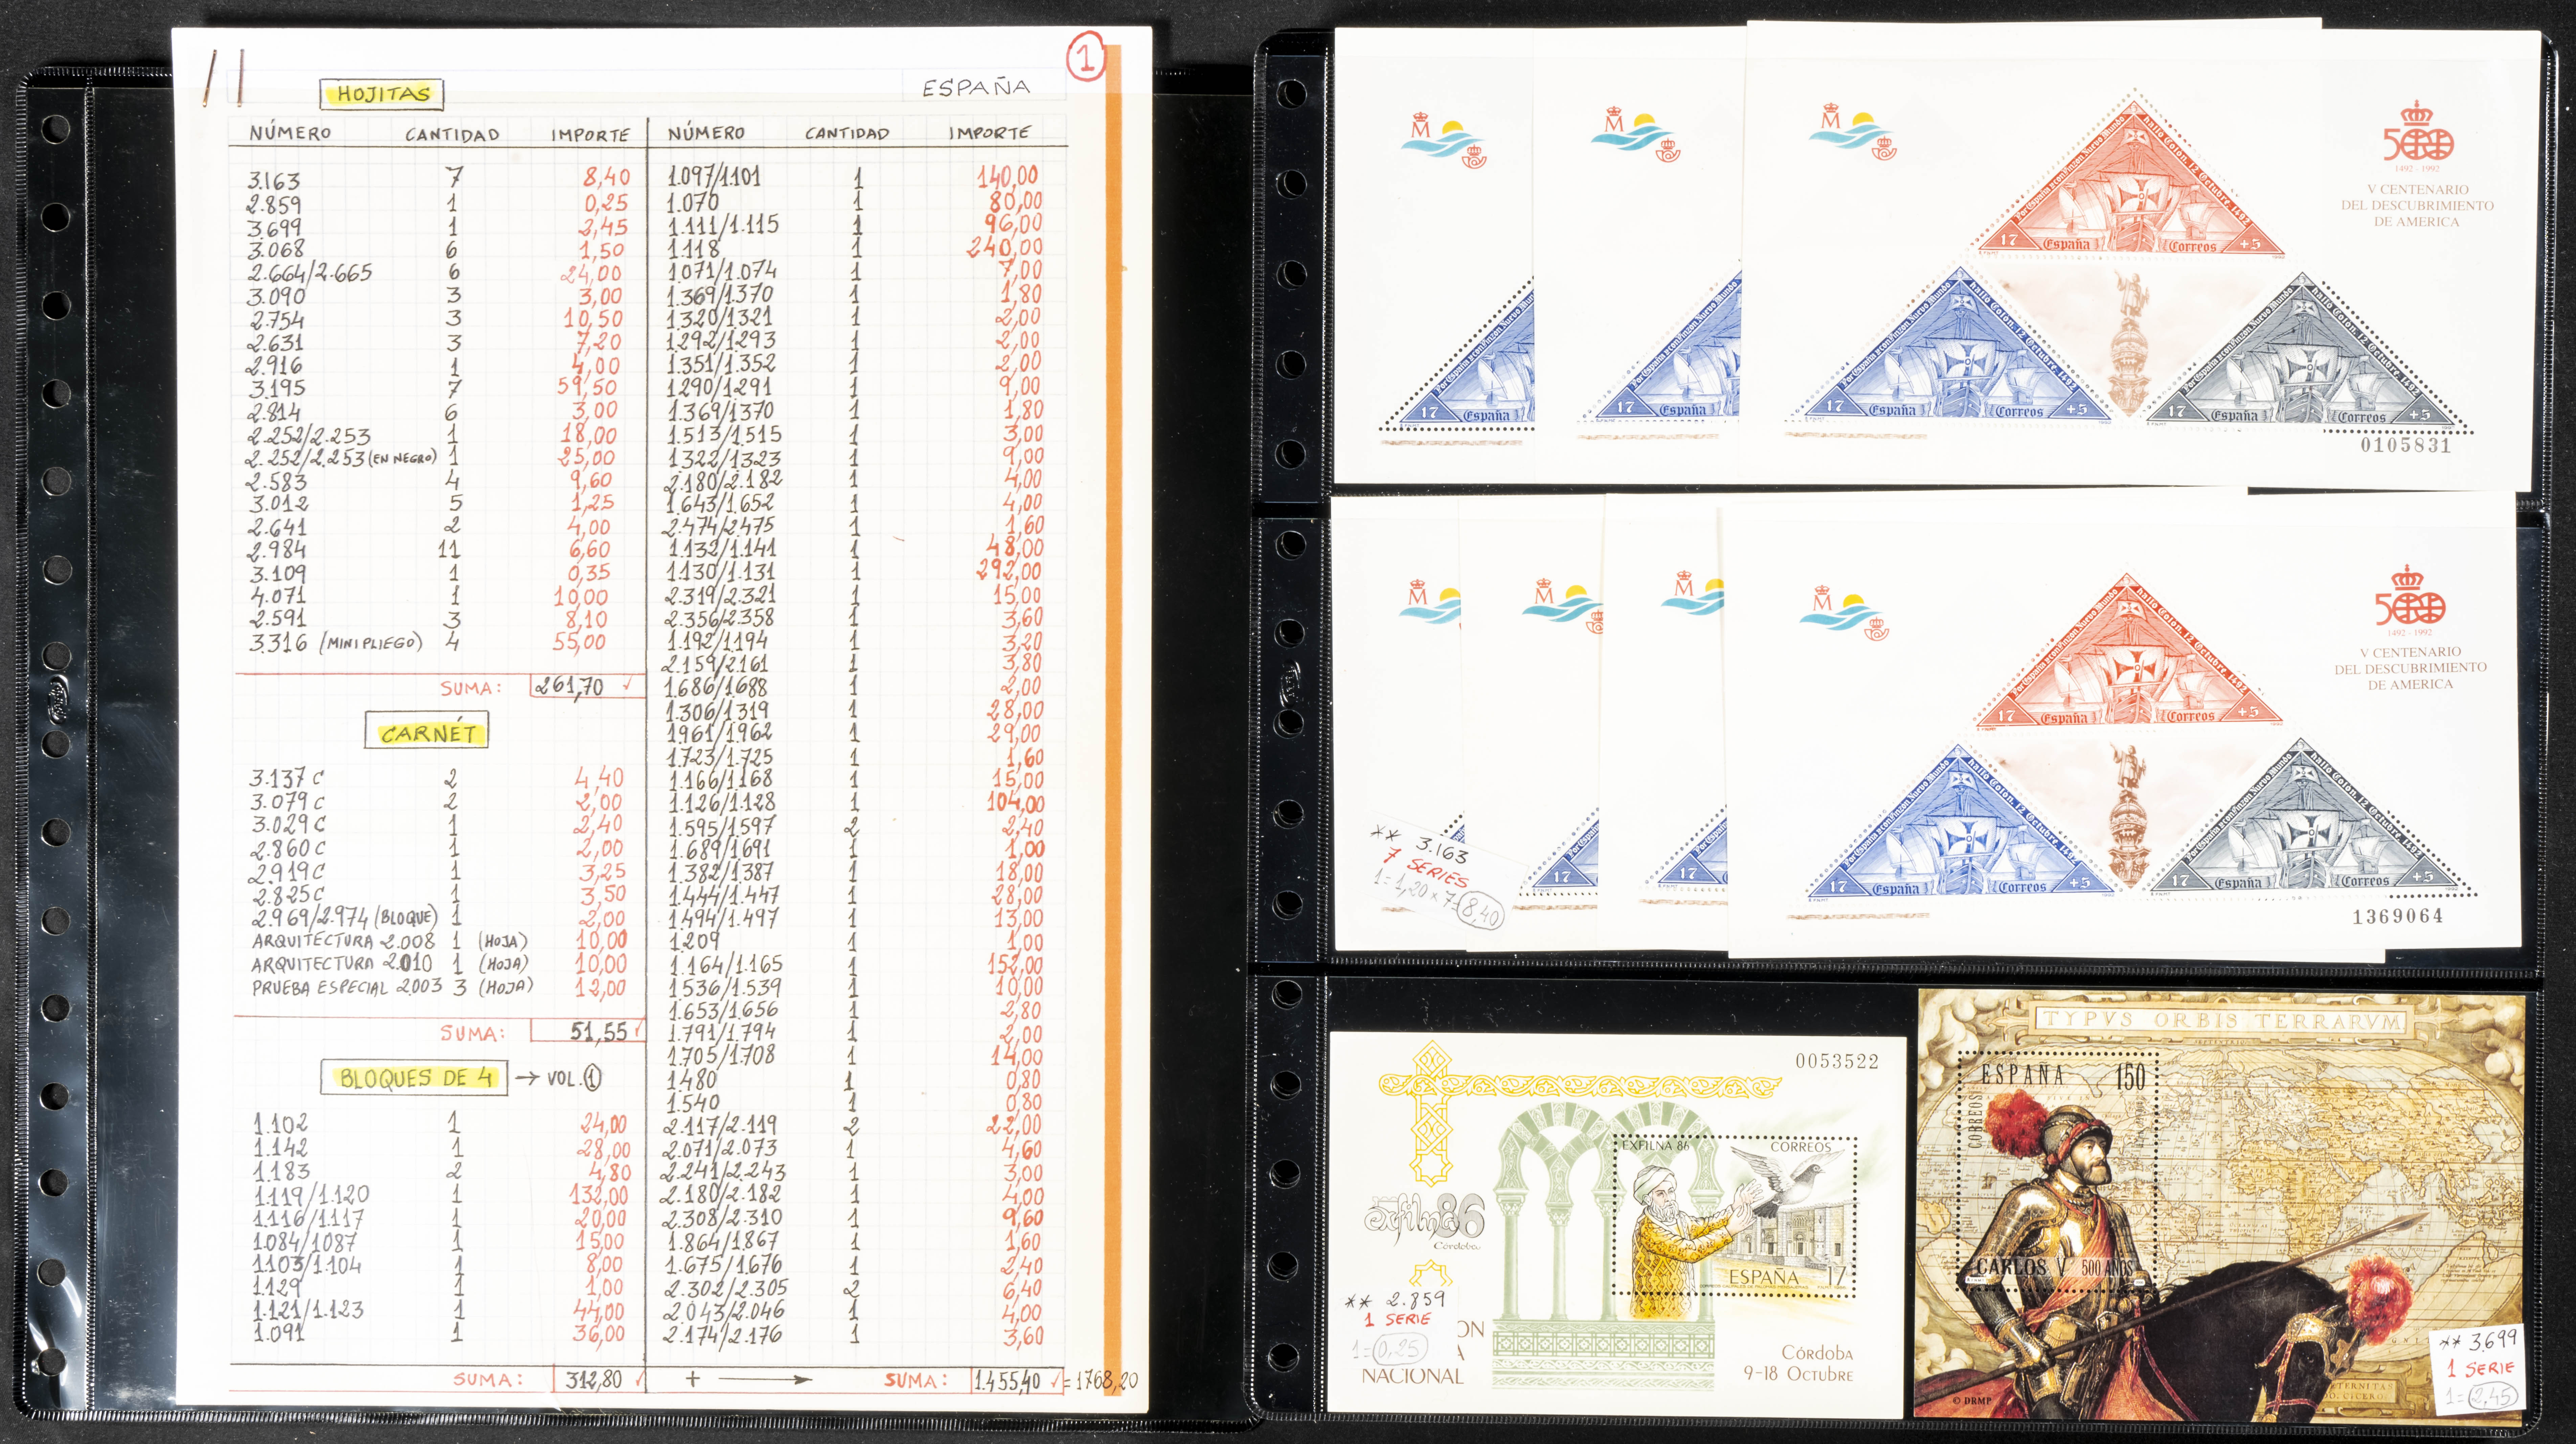 1
ESPAÑA
HOJITAS
NÚMERO CANTIDAD IMPORTE
3.163 7 8,40
2.859 1 0,25
3.699 1 2,45
3.068 6 1,50
2.664/2.665 6 24,00
3.090 3 3,00
2.754 3 10,50
2.631 3 7,20
2.916 1 4,00
3.195 7 59,50
2.814 6 3,00
2.252/2.253 1 18,00
2.252/2.253 (EN NEGRO) 1 25,00
2.583 4 9,60
3.012 5 1,25
2.641 2 4,00
2.984 11 6,60
3.109 1 0,35
4.071 1 10,00
2.591 3 8,10
3.316 (MINIPLIEGO) 4 55,00
SUMA: 261,70 ✓
CARNÉT
3.137 C 2 4,40
3.079 C 2 2,00
3.029 C 1 2,40
2.860 C 1 2,00
2.919 C 1 3,25
2.825 C 1 3,50
2.969/2.974 (BLOQUE) 1 2,00
ARQUITECTURA 2.008 1 (HOJA) 10,00
ARQUITECTURA 2.010 1 (HOJA) 10,00
PRUEBA ESPECIAL 2003 3 (HOJA) 12,00
SUMA: 51,55 ✓
BLOQUES DE 4 → VOL. 1
1.102 1 24,00
1.142 1 28,00
1.183 2 4,80
1.119/1.120 1 132,00
1.116/1.117 1 20,00
1.084/1087 1 15,00
1.103/1.104 1 8,00
1.129 1 1,00
1.121/1.123 1 44,00
1.091 1 36,00
SUMA: 312,80 ✓ +
NÚMERO CANTIDAD IMPORTE
1.097/1.101 1 140,00
1.070 1 80,00
1.111/1.115 1 96,00
1.118 1 240,00
1.071/1.074 1 7,00
1.369/1.370 1 1,80
1.320/1.321 1 2,00
1.292/1.293 1 2,00
1.351/1.352 1 2,00
1.290/1.291 1 9,00
1.369/1370 1 1,80
1.513/1.515 1 3,00
1.322/1.323 1 9,00
2.180/2.182 1 4,00
1.643/1.652 1 4,00
2.474/2.475 1 1,60
1.132/1.141 1 48,00
1.130/1.131 1 292,00
2.319/2.321 1 15,00
2.356/2.358 1 3,60
1.192/1.194 1 3,20
2.159/2.161 1 3,80
1.686/1.688 1 2,00
1.306/1.319 1 28,00
1.961/1.962 1 29,00
1.723/1.725 1 1,60
1.166/1.168 1 15,00
1.126/1.128 1 104,00
1.595/1.597 2 2,40
1.689/1.691 1 1,00
1.382/1.387 1 18,00
1.444/1.447 1 28,00
1.494/1.497 1 13,00
1.209 1 1,00
1.164/1.165 1 152,00
1.536/1.539 1 10,00
1.653/1.656 1 2,80
1.791/1.794 1 2,00
1.705/1.708 1 14,00
1.480 1 0,80
1.540 1 0,80
2.117/2.119 2 22,00
2.071/2.073 1 4,60
2.241/2.243 1 3,00
2.180/2.182 1 4,00
2.308/2.310 1 9,60
1.864/1.867 1 1,60
1.675/1.676 1 2,40
2.302/2.305 2 6,40
2.043/2.046 1 4,00
2.174/2.176 1 3,60
SUMA: 1.455,40 ✓ = 1768,20
M
M
M
500
1492 - 1992
V CENTENARIO
DEL DESCUBRIMIENTO
DE AMERICA
Por España halló Colon. 12 Octubre. 1492
17 España Correos +5
17 España
17 España
17 España Correos +5
17 España Correos +5
0105831
M
M
M
M
500
1492 - 1992
V CENTENARIO
DEL DESCUBRIMIENTO
DE AMERICA
17 España Correos +5
** 3.163
7 SERIES
1=1,20 x 7=8,40
17
17
17 España Correos +5
17 España Correos +5
1369064
0053522
EXFILNA 86 CORREOS
exfilna86
Córdoba
ESPAÑA 17
** 2.859
1 SERIE
1=0,25
ON
A
NACIONAL
Córdoba
9-18 Octubre
TYPVS ORBIS TERRARVM
ESPAÑA 150
CORREOS
CARLOS V 500 AÑOS
** 3.699
1 SERIE
1=2,45
© DRMP